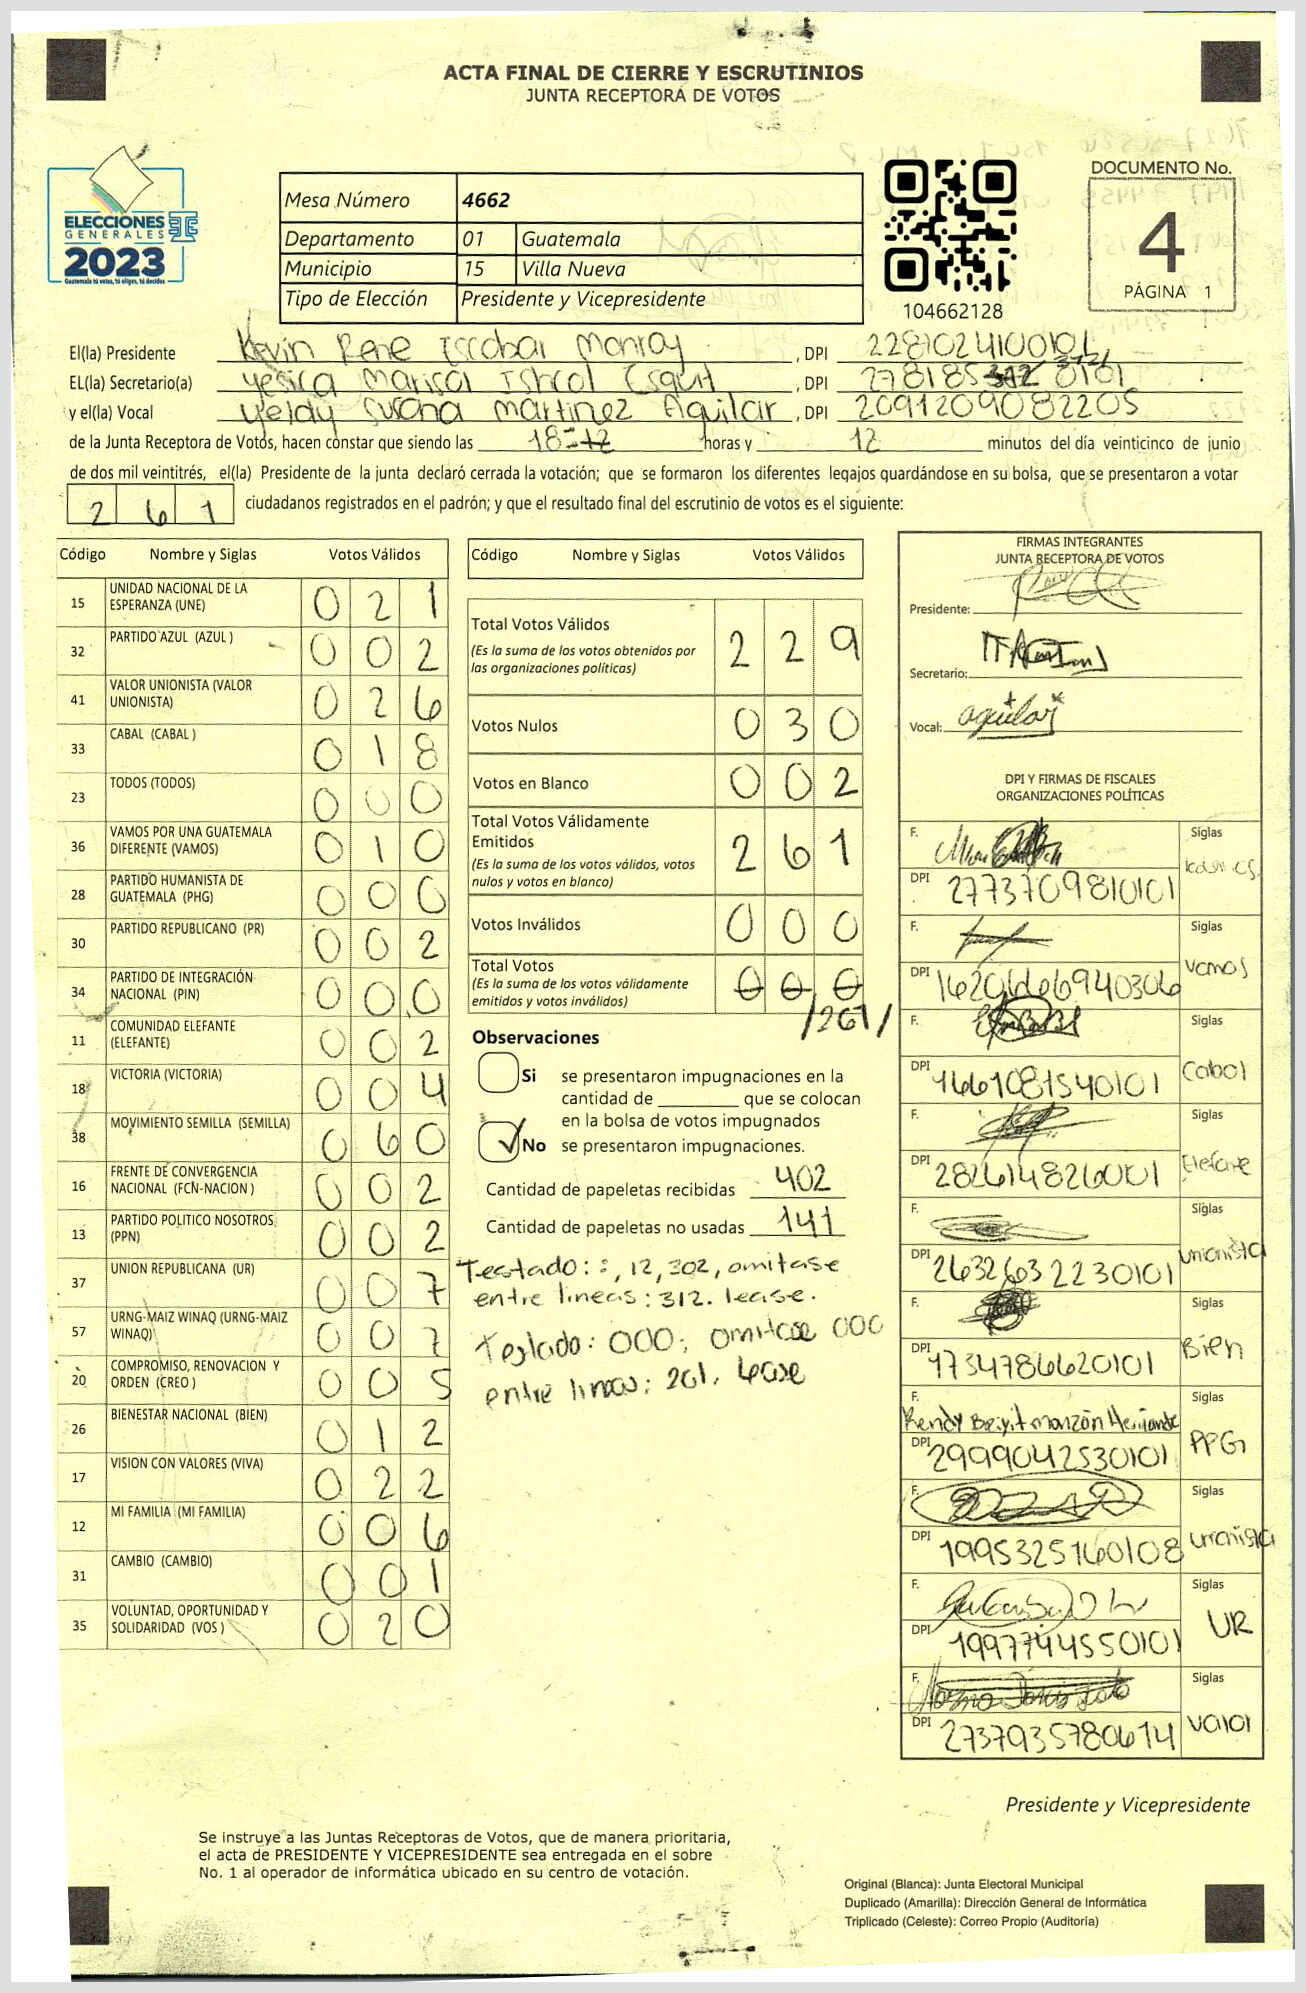 ACTA FINAL DE CIERRE Y ESCRUTINIOS
JUNTA RECEPTORA DE VOTOS
DOCUMENTO No.
4
PÁGINA 1
ELECCIONES
GENERALES
2023
Guatemala tú votas, tú eliges, tú decides
Mesa Número 4662
Departamento 01 Guatemala
Municipio 15 Villa Nueva
Tipo de Elección Presidente y Vicepresidente
104662128
El(la) Presidente Kevin Rene Escobar Monroy, DPI 2281024100101
EL(la) Secretario(a) Yesica Marisol Esquit, DPI 278185 312 0101
y el(la) Vocal Yeldy Susana Martinez Aguilar, DPI 2091209082205
de la Junta Receptora de Votos, hacen constar que siendo las 18 horas y 12 minutos del día veinticinco de junio
de dos mil veintitrés, el(la) Presidente de la junta declaró cerrada la votación; que se formaron los diferentes legajos guardándose en su bolsa, que se presentaron a votar
261 ciudadanos registrados en el padrón; y que el resultado final del escrutinio de votos es el siguiente:
Código Nombre y Siglas Votos Válidos
15 UNIDAD NACIONAL DE LA ESPERANZA (UNE) 0 2 1
32 PARTIDO AZUL (AZUL ) 0 0 2
41 VALOR UNIONISTA (VALOR UNIONISTA) 0 2 6
33 CABAL (CABAL ) 0 1 8
23 TODOS (TODOS) 0 0 0
36 VAMOS POR UNA GUATEMALA DIFERENTE (VAMOS) 0 1 0
28 PARTIDO HUMANISTA DE GUATEMALA (PHG) 0 0 0
30 PARTIDO REPUBLICANO (PR) 0 0 2
34 PARTIDO DE INTEGRACIÓN NACIONAL (PIN) 0 0 0
11 COMUNIDAD ELEFANTE (ELEFANTE) 0 0 2
18 VICTORIA (VICTORIA) 0 0 4
38 MOVIMIENTO SEMILLA (SEMILLA) 0 6 0
16 FRENTE DE CONVERGENCIA NACIONAL (FCN-NACION ) 0 0 2
13 PARTIDO POLITICO NOSOTROS (PPN) 0 0 2
37 UNION REPUBLICANA (UR) 0 0 7
57 URNG-MAIZ WINAQ (URNG-MAIZ WINAQ) 0 0 7
20 COMPROMISO, RENOVACION Y ORDEN (CREO ) 0 0 5
26 BIENESTAR NACIONAL (BIEN) 0 1 2
17 VISION CON VALORES (VIVA) 0 2 2
12 MI FAMILIA (MI FAMILIA) 0 0 6
31 CAMBIO (CAMBIO) 0 0 1
35 VOLUNTAD, OPORTUNIDAD Y SOLIDARIDAD (VOS ) 0 2 0
Código Nombre y Siglas Votos Válidos
Total Votos Válidos 2 2 9
(Es la suma de los votos obtenidos por las organizaciones políticas)
Votos Nulos 0 3 0
Votos en Blanco 0 0 2
Total Votos Válidamente Emitidos 2 6 1
(Es la suma de los votos válidos, votos nulos y votos en blanco)
Votos Inválidos 0 0 0
Total Votos 0 0 0
(Es la suma de los votos válidamente emitidos y votos inválidos)
/261/
Observaciones
Si se presentaron impugnaciones en la
cantidad de ________ que se colocan
en la bolsa de votos impugnados
No se presentaron impugnaciones.
Cantidad de papeletas recibidas 402
Cantidad de papeletas no usadas 141
Testado: :, 12, 302, omitase
entre lineas: 312. lease.
Testado: 000; omitase 000
entre lineas: 261. lease
FIRMAS INTEGRANTES
JUNTA RECEPTORA DE VOTOS
Presidente:
Secretario:
Vocal: aguilar
DPI Y FIRMAS DE FISCALES
ORGANIZACIONES POLÍTICAS
F. Siglas
DPI 2773709810101
F. Siglas Vamos
DPI 1620666940306
F. Siglas Cabal
DPI 1661081540101
F. Siglas Elefante
DPI 2826148260001
F. Siglas Unionista
DPI 26326032230101
F. Siglas Bien
DPI 1734786620101
F. Kendy Brigit Monzón Hernandez Siglas PPG
DPI 2999042530101
F. Siglas Unionista
DPI 1995325160108
F. Siglas UR
DPI 1997744550101
F. Siglas Valor
DPI 2737935780614
Presidente y Vicepresidente
Se instruye a las Juntas Receptoras de Votos, que de manera prioritaria,
el acta de PRESIDENTE Y VICEPRESIDENTE sea entregada en el sobre
No. 1 al operador de informática ubicado en su centro de votación.
Original (Blanca): Junta Electoral Municipal
Duplicado (Amarilla): Dirección General de Informática
Triplicado (Celeste): Correo Propio (Auditoría)